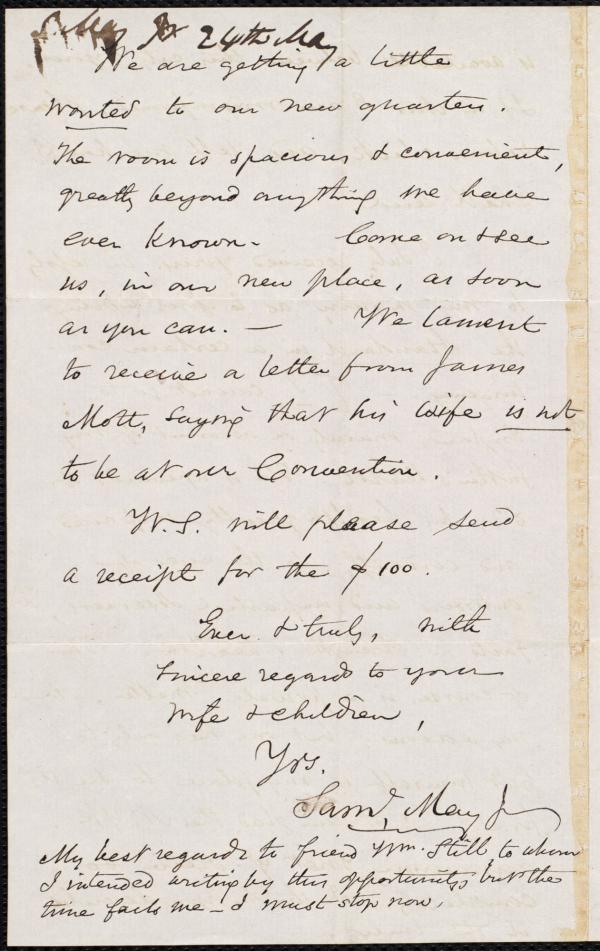 24th May
We are getting a little
wonted to our new quarters.
The room is spacious & convenient,
greatly beyond anything we have
ever known. Come on & see
us, in our new place, as soon
as you can. — We lament
to receive a letter from James
Mott, saying that his wife is not
to be at our Convention.
W.S. will please send
a receipt for the $100.
Ever & truly, with
sincere regards to your
wife & children,
Yrs.
Saml. May Jr
My best regards to friend Wm. Still, to whom
I intended writing by this opportunity, but the
time fails me — I must stop now.